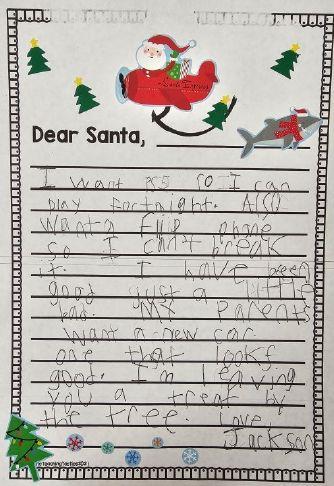 Dear Santa,
I want PS5 so I can
play fortnight. Also
want a flip phone
so I can't break
it. I have been
good just a little
bad. My parents
want a new car
one that looks
good. I'm leaving
you a treat by
the tree. Love,
Jackson